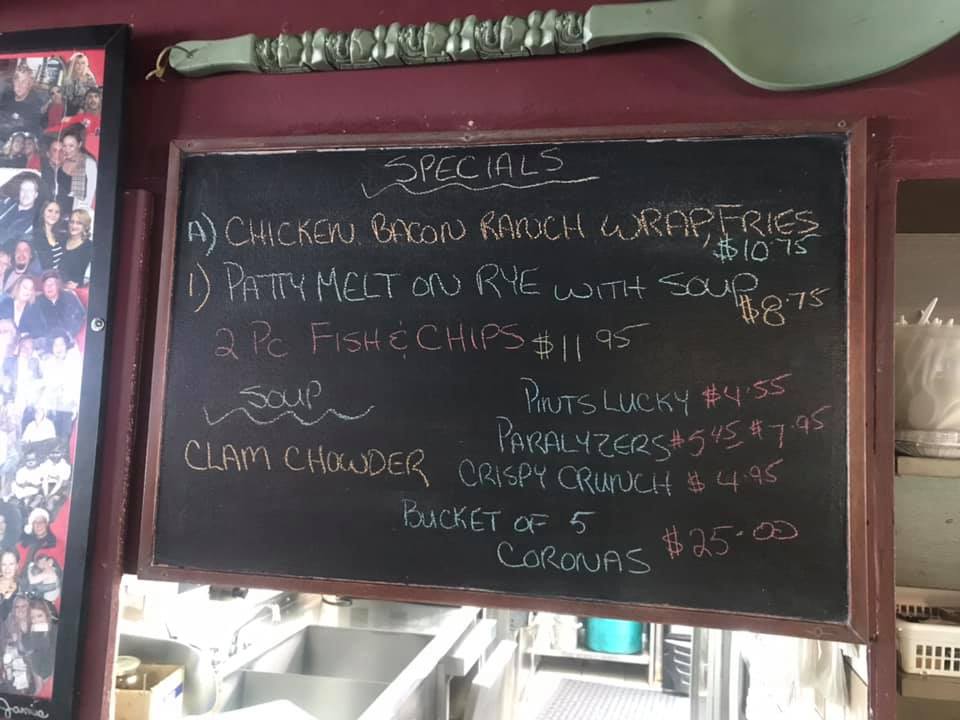 SPECIALS
A) CHICKEN BACON RANCH WRAP, FRIES
$10.75
1) PATTY MELT ON RYE WITH SOUP
$8.75
2 PC FISH & CHIPS $11.95
SOUP
CLAM CHOWDER
PINTS LUCKY $4.55
PARALYZERS $5.45 $7.95
CRISPY CRUNCH $4.95
BUCKET OF 5
CORONAS $25.00
Jamie